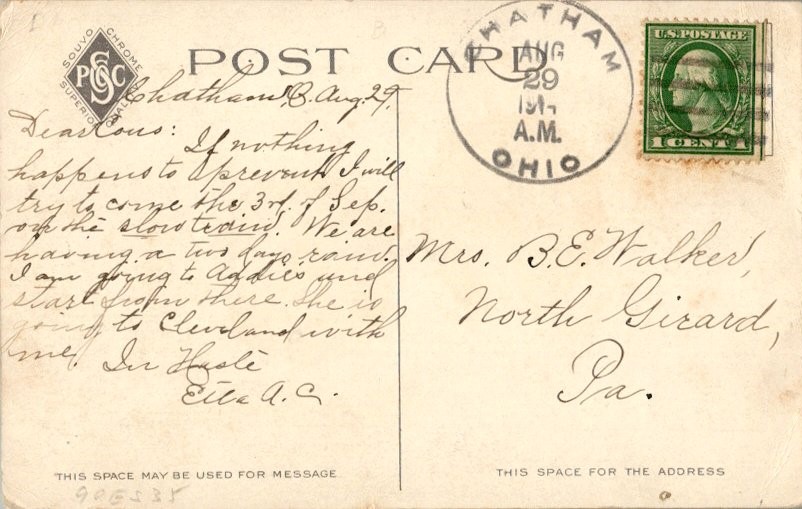 SOUVO CHROME
SUPERIOR QUALITY
POST CARD
Chatham, O. Aug. 29,
Dear Cous:
If nothing
happens to prevent I will
try to come the 3rd. of Sep.
on the slow train. We are
having a two days rain.
I am going to Addies and
start from there. She is
going to Cleveland with
me. In Haste
Etta A. C.
THIS SPACE MAY BE USED FOR MESSAGE
CHATHAM
AUG
29
A.M.
OHIO
U.S. POSTAGE
1 CENT 1
Mrs. B. E. Walker,
North Girard,
Pa.
THIS SPACE FOR THE ADDRESS